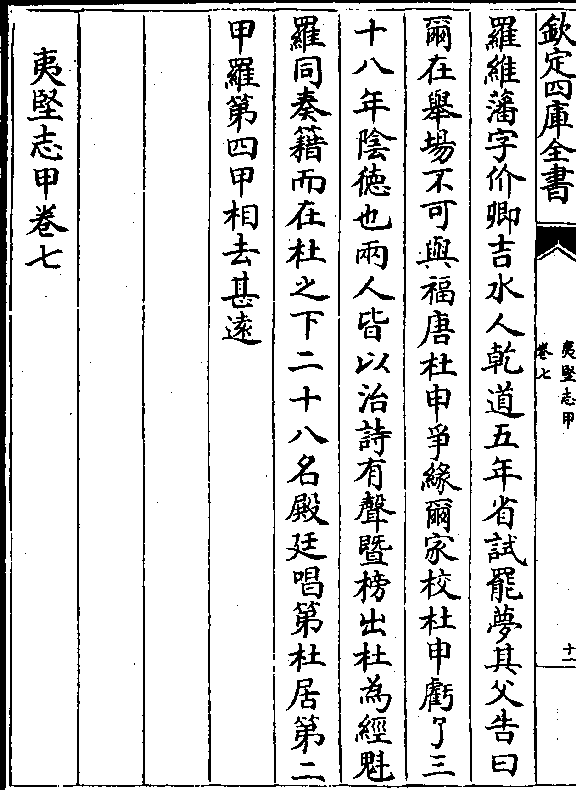 欽定四庫全書
夷堅志甲
卷七
十二
羅維藩字价卿吉水人乾道五年省試罷夢其父告曰
爾在舉場不可與福唐杜申爭緣爾家校杜申虧了三
十八年陰徳也兩人皆以治詩有聲暨榜出杜為經魁
羅同奏籍而在杜之下二十八名殿廷唱第杜居第二
甲羅第四甲相去甚逺
夷堅志甲卷七